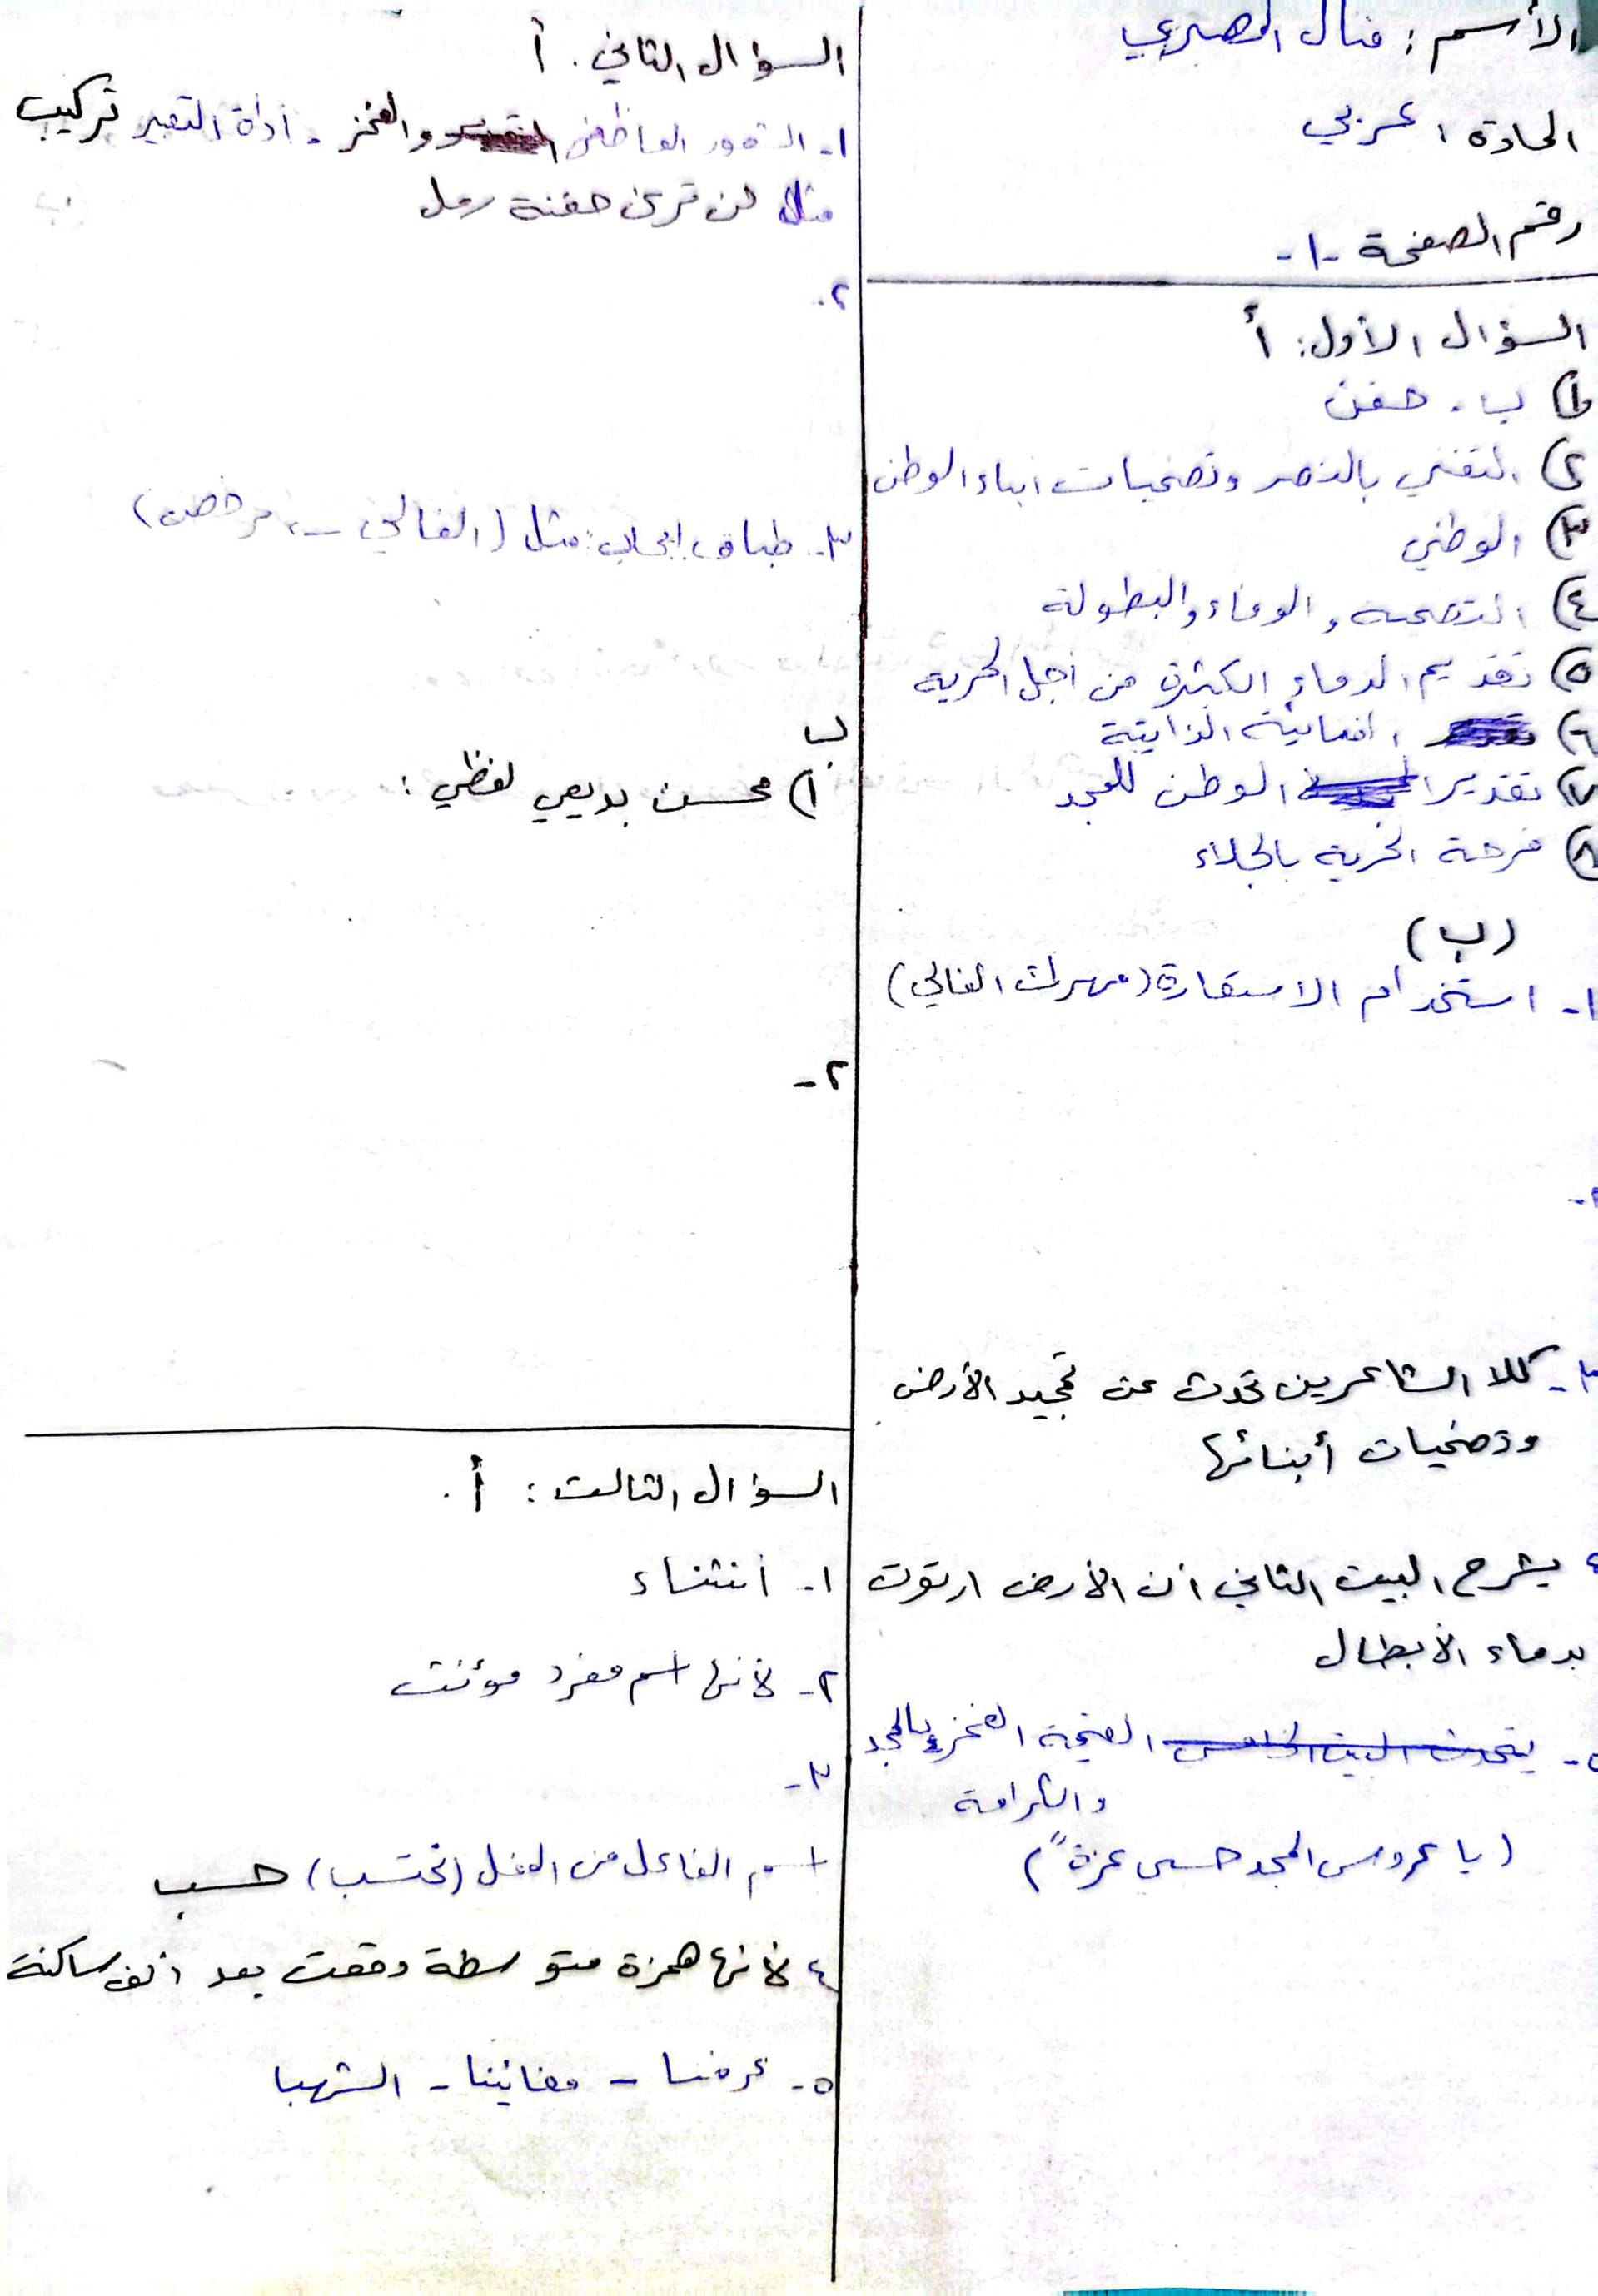 الأسم : منال المصبري
المادة : عربي
رقم الصفحة -١-
السؤال الأول: أ
١) ب . حفن
٢) التغني بالنصر وتضحيات ابناء الوطن
٣) الوطني
٤) التضحية والوفاء والبطولة
٥) تقديم الدماء الكثيرة من اجل الحرية
٦) الذاتية
٧) تقدير الوطن للمجد
٨) فرحة الحرية بالجلاء
(ب)
١- استخدام الاستعارة (مهرك الغالي)
٢-
٣- كلا الشاعرين تحدث عن تمجيد الأرض
وتضحيات أبنائها
٤ يشرح البيت الثاني ان الأرض ارتوت
بدماء الأبطال
٥- القيمة الفخر بالمجد
والكرامة
(يا عروس المجد حسبي عزةً)
السؤال الثاني . أ
١- الشعور العاطفي والفخر . أداة التعبير تركيب
مثال لن تري حفنة رمل
٢.
٣- طباق إيجاب: مثل (الغالي -
ب
١) محسن بديعي لفظي :
٢-
السؤال الثالث : أ .
١- انتشاء
٢- لأنها اسم مفرد مؤنث
٣-
اسم الفاعل من الفعل (تحتسب) حسب
٤ لأنها همزة متوسطة وقعت بعد ألف ساكنة
٥- عرفنا - مغانينا - الشهبا